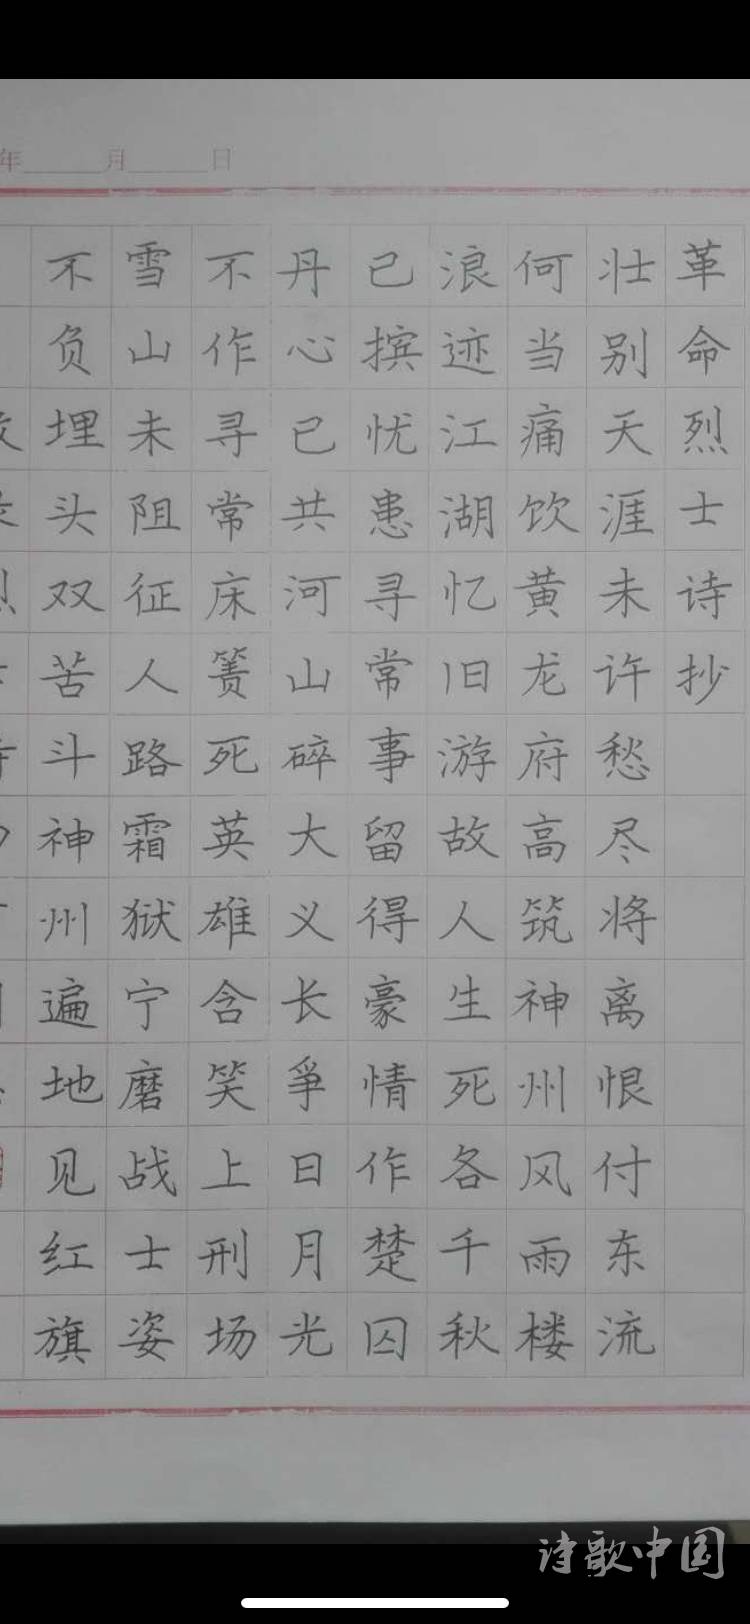 年 月 日
革命烈士诗抄
壮别天涯未许愁尽将离恨付东流
何当痛饮黄龙府高筑神州风雨楼
浪迹江湖忆旧游故人生死各千秋
已摈忧患寻常事留得豪情作楚囚
丹心已共河山碎大义长爭日月光
不作寻常床箦死英雄含笑上刑场
雪山未阻征人路霜狱宁磨战士姿
不负埋头双苦斗神州遍地见红旗
诗歌中国